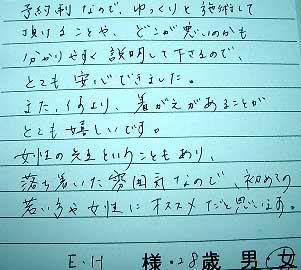 予約制なので、ゆっくりと施術して
頂けることや、どこが悪いのかも
分かりやすく説明して下さるので、
とても安心できました。
また、何より、着がえがあることが
とても嬉しいです。
女性の先生ということもあり、
落ち着いた雰囲気なので、初めての
若い方や女性にオススメだと思います。
E.H 様・28歳 男・女